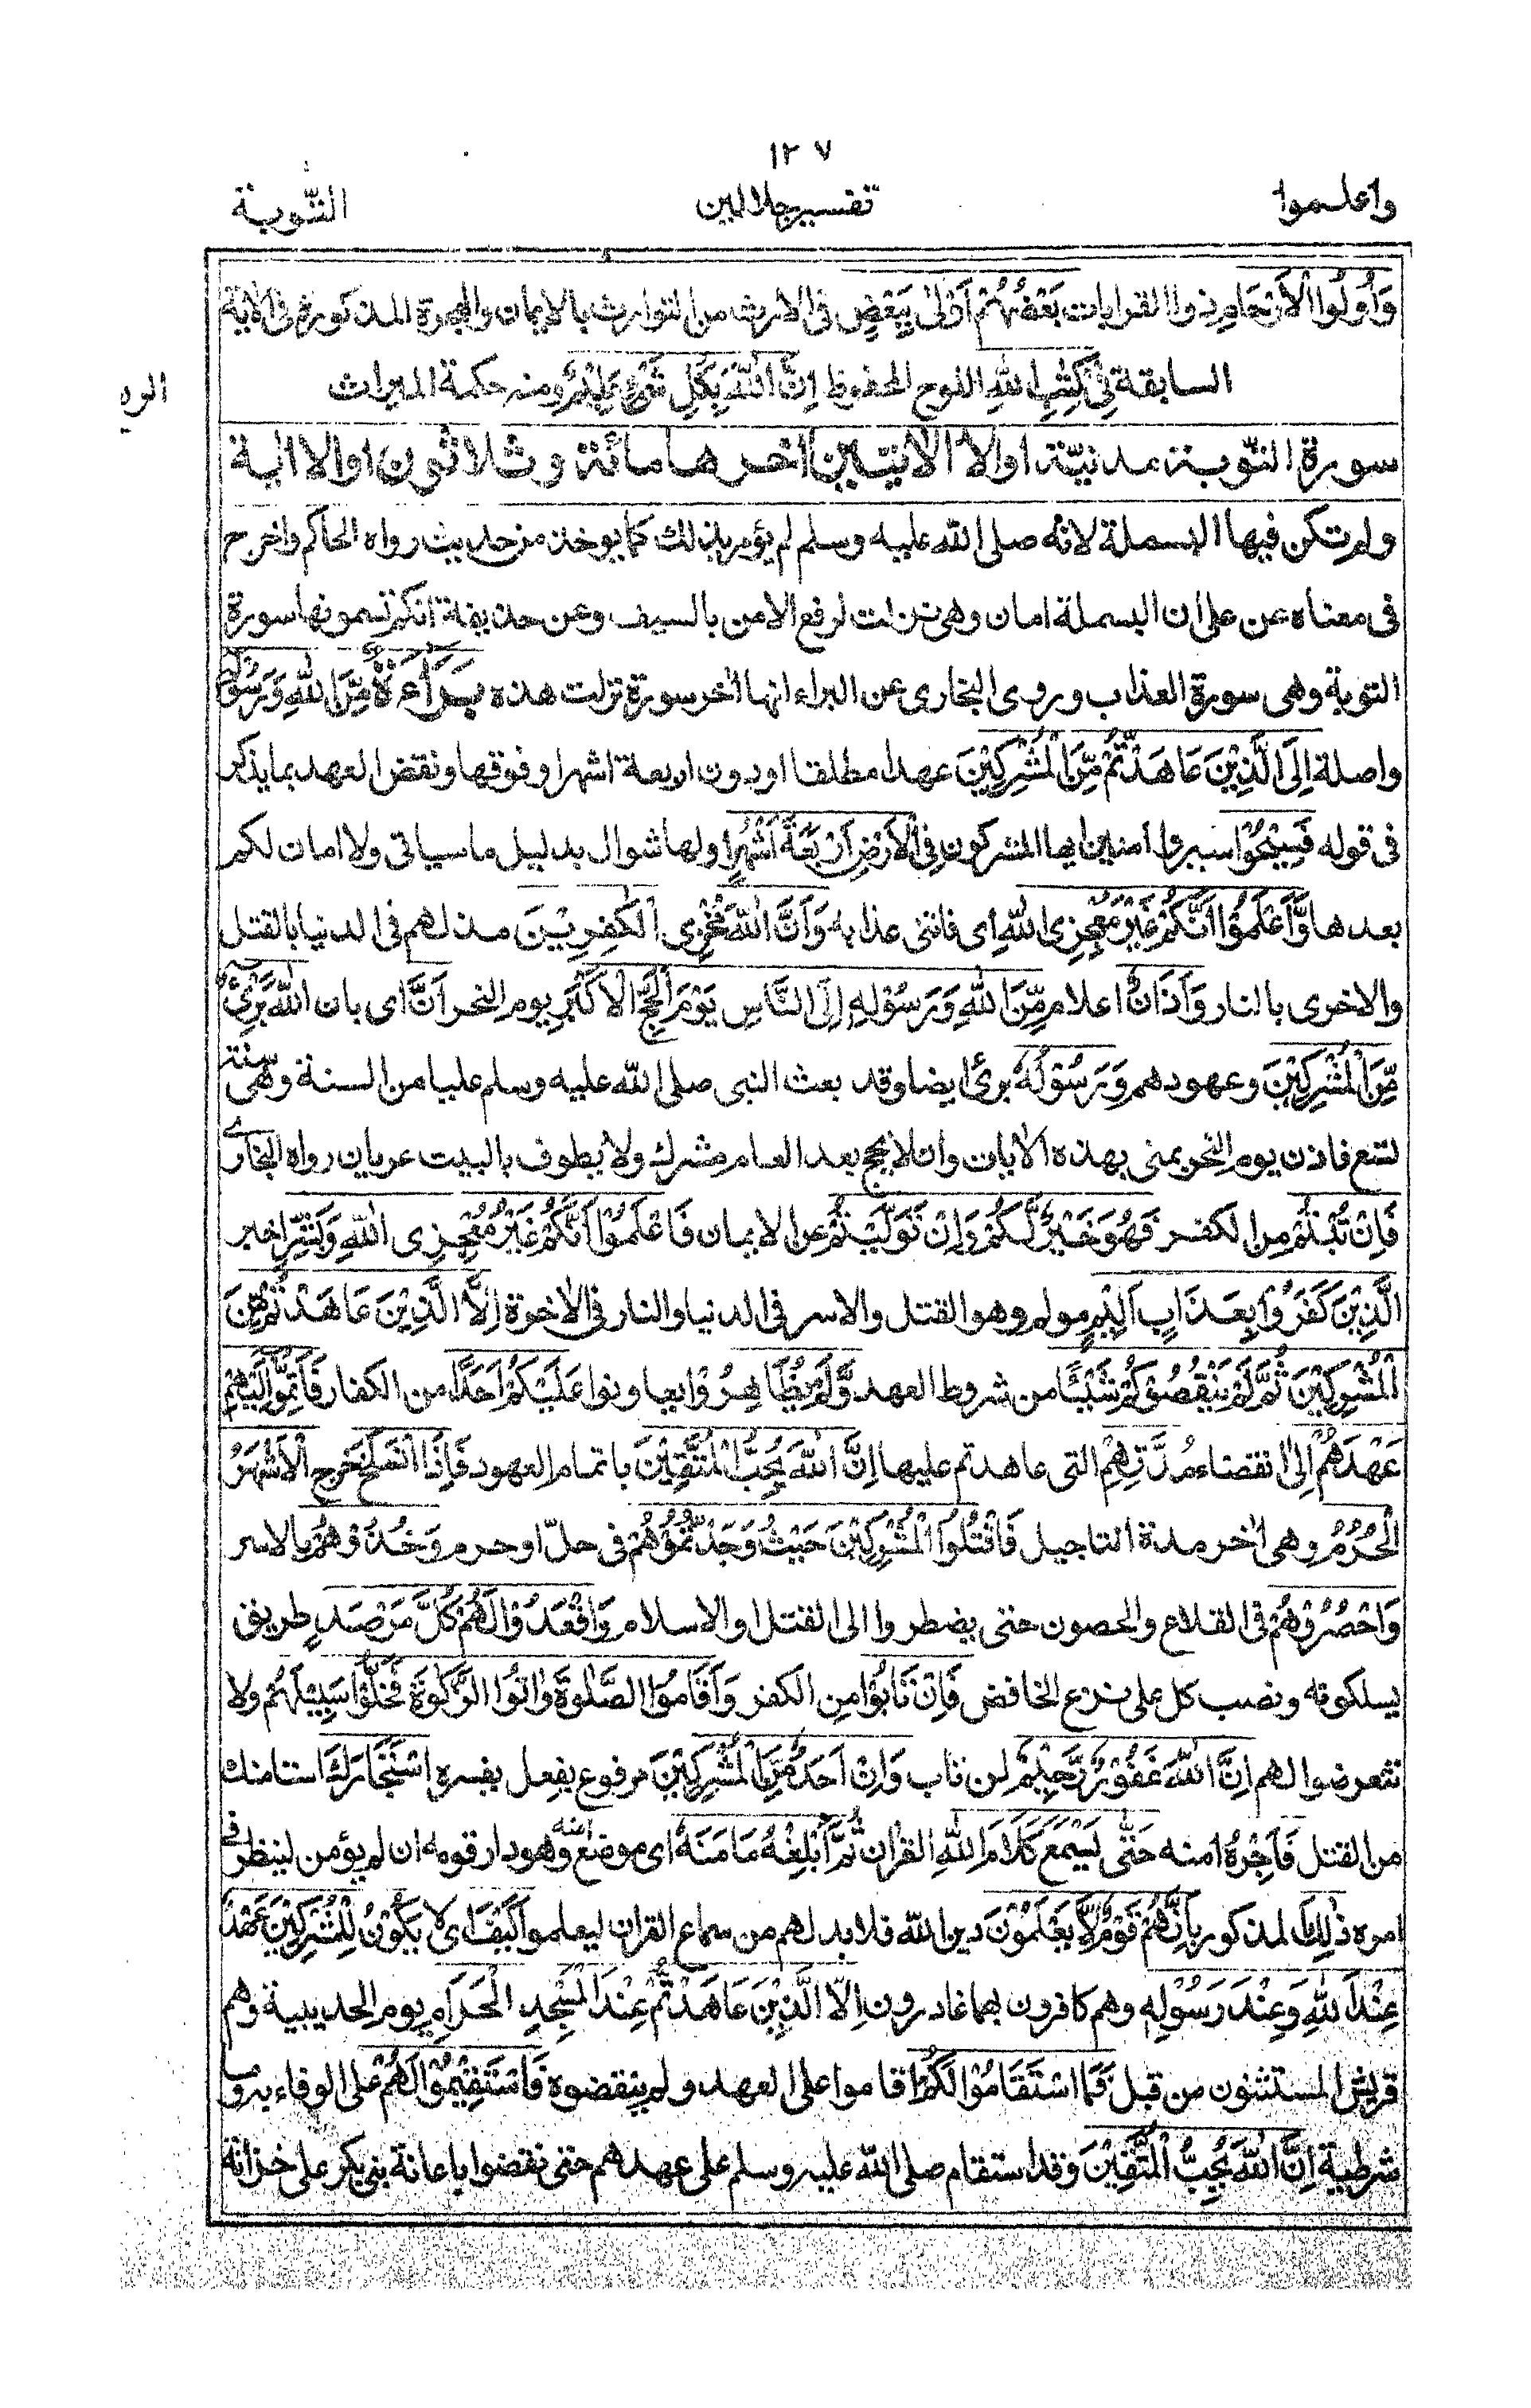 ١٢٧
واعلموا تفسير جلالين التوبة
وَأُولُوا الْأَرْحَامِ ذووا القرابات بَعْضُهُمْ أَوْلَىٰ بِبَعْضٍ فى الارث من التوارث بالايمان والهجرة المذكورة فى الاٰية
السابقة فِي كِتٰبِ اللّٰهِ اللوح المحفوظ اِنَّ اللّٰهَ بِكُلِّ شَيْءٍ عَلِيْمٌ ومنه حكمة الميراث
سورة التوبة مدنيّة اوالا الاٰيتين اٰخرها مائة وثلاثون اوالا اٰية
ولم تكن فيها البسملة لانه صلى الله عليه وسلم لم يؤمر بذلك كما يوخذ من حديث رواه الحاكم واخرج
فى معناه عن على ان البسملة امان وهى نزلت لرفع الامن بالسيف وعن حذيفة انكم تسمونها سورة
التوبة وهى سورة العذاب وروى البخارى عن البراء انها اٰخر سورة نزلت هذه بَرَآءَةٌ مِّنَ اللّٰهِ وَرَسُوْلِهٖ
واصلة اِلَى الَّذِيْنَ عَاهَدْتُّمْ مِّنَ الْمُشْرِكِيْنَ عهدا مطلقا او دون اربعة اشهر او فوقها ونقض العهد بما يذكر
فى قوله فَسِيْحُوْا سيروا اٰمنين ايها المشركون فِي الْاَرْضِ اَرْبَعَةَ اَشْهُرٍ اولها شوال بدليل ما سياتى ولا امان لكم
بعدها وَّاعْلَمُوْا اَنَّكُمْ غَيْرُ مُعْجِزِى اللّٰهِ اى فائتى عذابه وَاَنَّ اللّٰهَ مُخْزِى الْكٰفِرِيْنَ مذلهم فى الدنيا بالقتل
والاخرى بالنار وَاَذَانٌ اعلام مِّنَ اللّٰهِ وَرَسُوْلِهٖ اِلَى النَّاسِ يَوْمَ الْحَجِّ الْاَكْبَرِ يوم النحر اَنَّ اى بان اللّٰهَ بَرِىْءٌ
مِّنَ الْمُشْرِكِيْنَ وعهودهم وَرَسُوْلُهٗ برئ ايضا وقد بعث النبى صلى الله عليه وسلم عليا من السنة وهى سنة
تسع فاذن يوم النحر بمنى بهذه الاٰيات وان لا يحج بعد العام مشرك ولا يطوف بالبيت عريان رواه البخارى
فَاِنْ تُبْتُمْ من الكفر فَهُوَ خَيْرٌ لَّكُمْ وَاِنْ تَوَلَّيْتُمْ عن الايمان فَاعْلَمُوْا اَنَّكُمْ غَيْرُ مُعْجِزِى اللّٰهِ وَبَشِّرِ اخبر
الَّذِيْنَ كَفَرُوْا بِعَذَابٍ اَلِيْمٍ مولم وهو القتل والاسر فى الدنيا والنار فى الاٰخرة اِلَّا الَّذِيْنَ عَاهَدْتُّمْ مِّنَ
الْمُشْرِكِيْنَ ثُمَّ لَمْ يَنْقُصُوْكُمْ شَيْئًا من شروط العهد وَّلَمْ يُظَاهِرُوْا يعاونوا عَلَيْكُمْ اَحَدًا من الكفار فَاَتِمُّوْا اِلَيْهِمْ
عَهْدَهُمْ اِلٰى انقضاء مُدَّتِهِمْ التى عاهدتم عليها اِنَّ اللّٰهَ يُحِبُّ الْمُتَّقِيْنَ باتمام العهود فَاِذَا انْسَلَخَ خرج الْاَشْهُرُ
الْحُرُمُ وهى اٰخر مدة التاجيل فَاقْتُلُوا الْمُشْرِكِيْنَ حَيْثُ وَجَدْتُّمُوْهُمْ فى حلّ او حرم وَخُذُوْهُمْ بالاسر
وَاحْصُرُوْهُمْ فى القلاع والحصون حتى يضطروا الى القتل او الاسلام وَاقْعُدُوْا لَهُمْ كُلَّ مَرْصَدٍ طريق
يسلكونه ونصب كل على نزع الخافض فَاِنْ تَابُوْا من الكفر وَاَقَامُوا الصَّلٰوةَ وَاٰتَوُا الزَّكٰوةَ فَخَلُّوْا سَبِيْلَهُمْ ولا
تتعرضوا لهم اِنَّ اللّٰهَ غَفُوْرٌ رَّحِيْمٌ لمن تاب وَاِنْ اَحَدٌ مِّنَ الْمُشْرِكِيْنَ مرفوع بفعل يفسره اسْتَجَارَكَ استامنك
من القتل فَاَجِرْهُ امنه حَتّٰى يَسْمَعَ كَلَامَ اللّٰهِ القراٰن ثُمَّ اَبْلِغْهُ مَاْمَنَهٗ اى موضع امنه وهو دار قومه ان لم يؤمن لينظر فى
امره ذٰلِكَ المذكور بِاَنَّهُمْ قَوْمٌ لَّا يَعْلَمُوْنَ دين الله فلا بد لهم من سماع القراٰن ليعلموا كَيْفَ اى لا يَكُوْنُ لِلْمُشْرِكِيْنَ عَهْدٌ
عِنْدَ اللّٰهِ وَعِنْدَ رَسُوْلِهٖ وهم كافرون بهما غادرون اِلَّا الَّذِيْنَ عَاهَدْتُّمْ عِنْدَ الْمَسْجِدِ الْحَرَامِ يوم الحديبية وهم
قريش المستثنون من قبل فَمَا اسْتَقَامُوْا لَكُمْ اقاموا على العهد ولم ينقضوه فَاسْتَقِيْمُوْا لَهُمْ على الوفاء به وما
شرطية اِنَّ اللّٰهَ يُحِبُّ الْمُتَّقِيْنَ وقد استقام صلى الله عليه وسلم على عهدهم حتى نقضوا باعانة بنى بكر على خزاعة